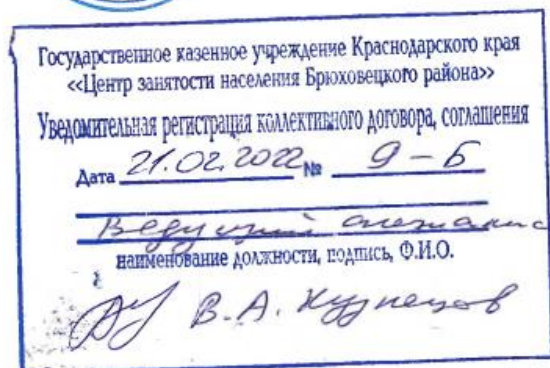 Государственное казенное учреждение Краснодарского края
«Центр занятости населения Брюховецкого района»
Уведомительная регистрация коллективного договора, соглашения
Дата 21.02.2022 № 9-Б
Ведущий
наименование должности, подпись, Ф.И.О.
В.А. Кузнецов